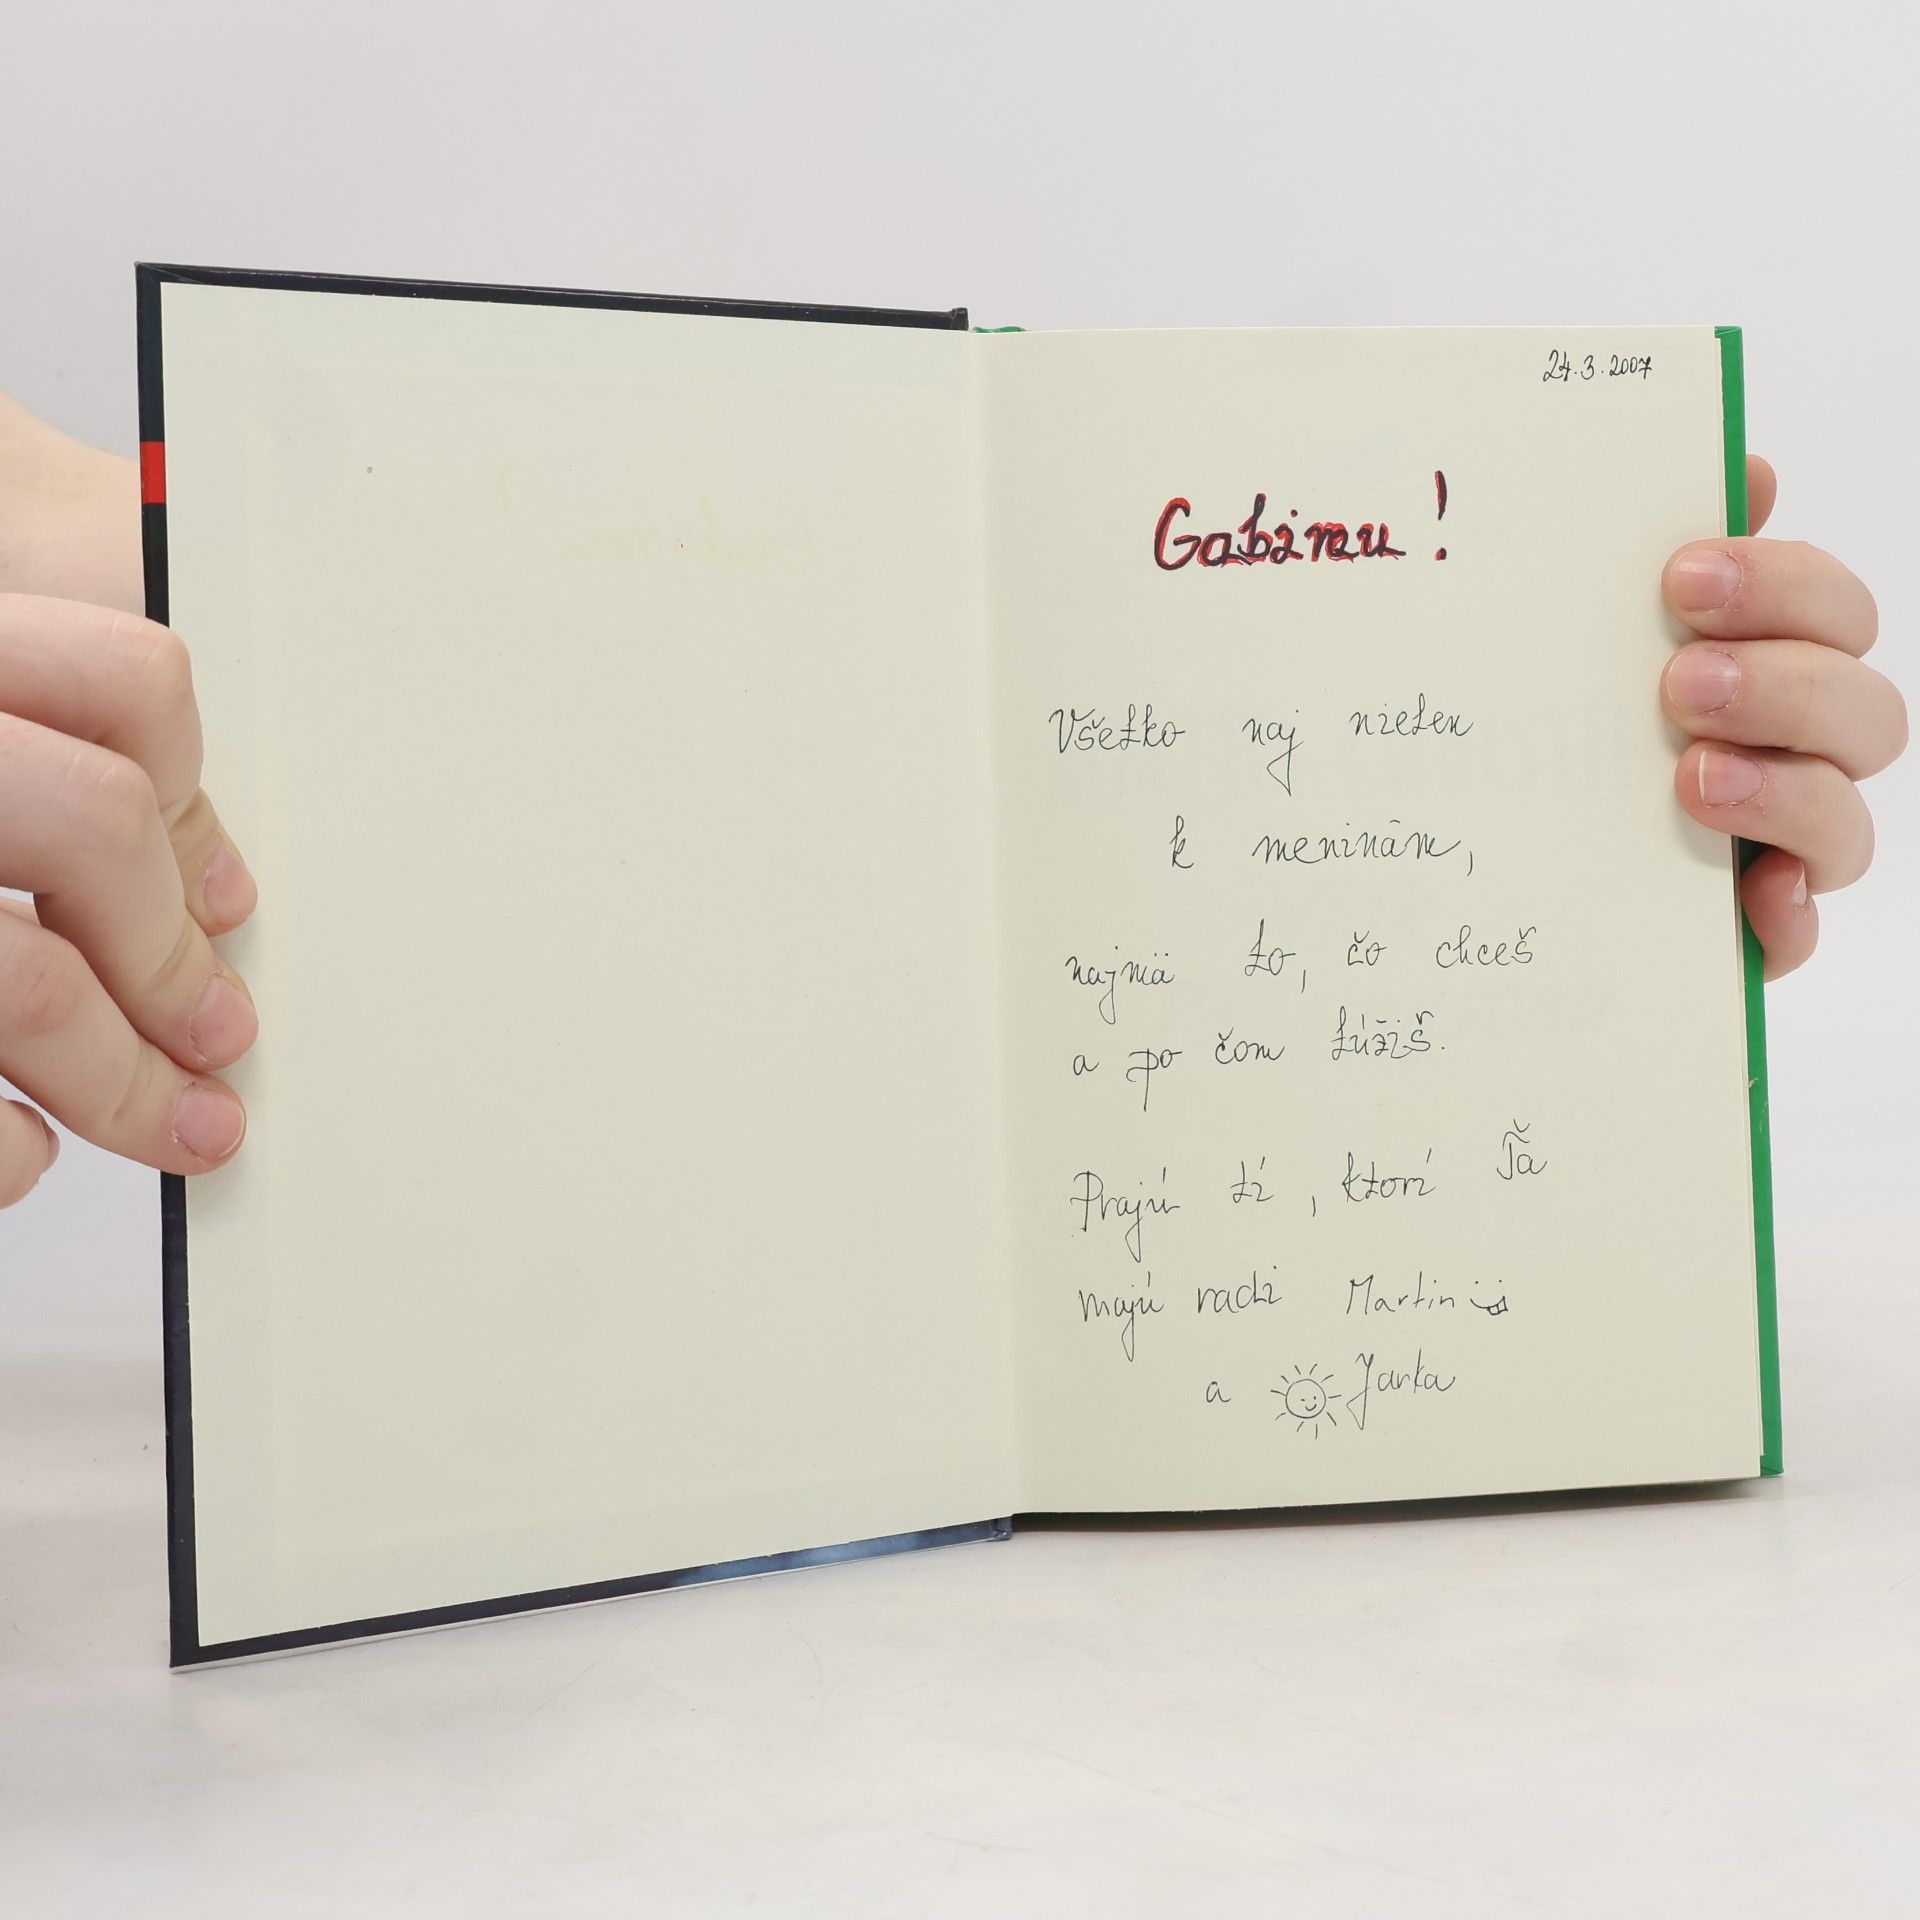 24.3.2007
Gabimu!
Všetko naj nielen
k meninám,
najmä to, čo chceš
a po čom túžiš.
Prajú tí, ktorí Ťa
majú radi Martin
a Jarka